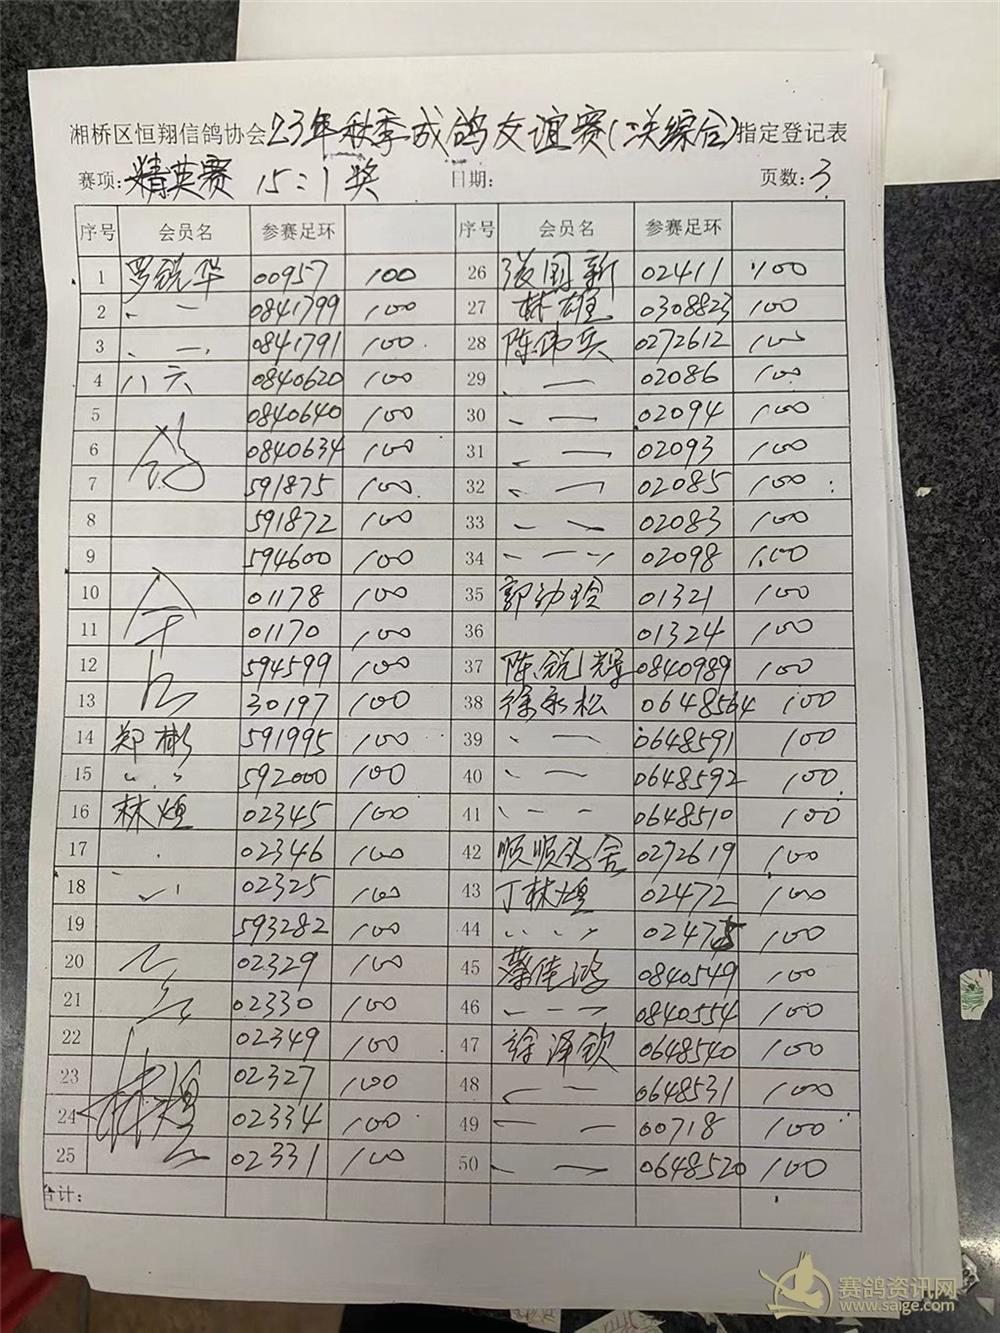 湘桥区恒翔信鸽协会23年秋季成鸽友谊赛(二关综合)指定登记表
赛项:精英赛 15:1奖 日期: 页数:3
序号 会员名 参赛足环 序号 会员名 参赛足环
1 罗锐华 00957 100 26 张国新 02411 100
2 〃 一 0841799 100 27 林雄 0308823 100
3 〃 一 0841791 100 28 陈伟兵 0272612 100
4 八六 0840620 100 29 、一 02086 100
5 0840640 100 30 、一 02094 100
6 鸽 0840634 100 31 、一 02093 100
7 591875 100 32 、一 02085 100
8 591872 100 33 、、 02083 100
9 594600 100 34 、一、 02098 100
10 01178 100 35 郭幼玲 01321 100
11 01170 100 36 01324 100
12 594599 100 37 陈锐辉 0840989 100
13 30197 100 38 徐永松 0648564 100
14 郑彬 591995 100 39 、一 0648591 100
15 〃 592000 100 40 、一 0648592 100
16 林煌 02345 100 41 、一一 0648510 100
17 02346 100 42 顺顺鸽舍 0272619 100
18 02325 100 43 丁林煌 02472 100
19 593282 100 44 〃 02475 100
20 02329 100 45 蔡佳鸿 0840549 100
21 02330 100 46 、一一 0840554 100
22 02349 100 47 徐泽钦 0648540 100
23 林煌 02327 100 48 、一 0648531 100
24 02334 100 49 、一 00718 100
25 02331 100 50 、一 0648520 100
合计:
赛鸽资讯网
www.saige.com